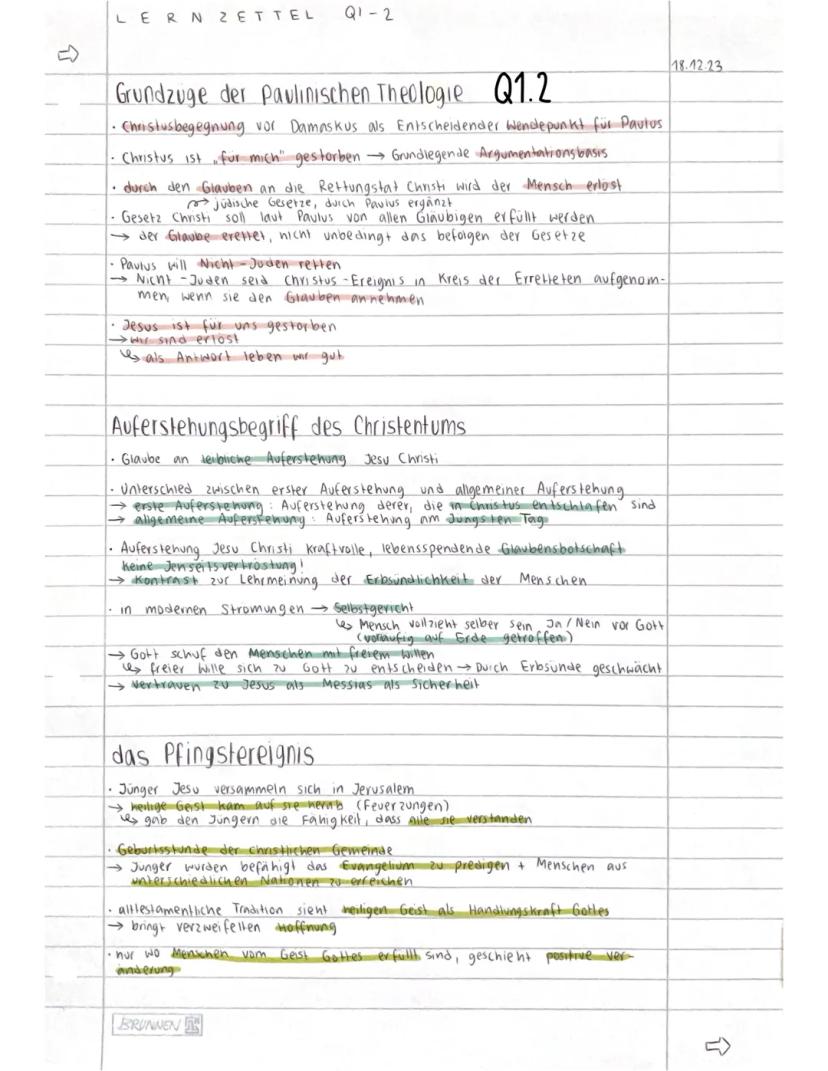 LERNZETTEL Q1-2
18.12.23
Grundzüge der Paulinischen Theologie Q1.2
· Christusbegegnung vor Damaskus als Entscheidender Wendepunkt für Paulus
· Christus ist „für mich" gestorben → Grundlegende Argumentationsbasis
· durch den Glauben an die Rettungstat Christi wird der Mensch erlöst
↪ jüdische Gesetze, durch Paulus ergänzt
· Gesetz Christi soll laut Paulus von allen Gläubigen erfüllt werden
→ der Glaube erettet, nicht unbedingt das befolgen der Gesetze
· Paulus will Nicht-Juden retten
→ Nicht-Juden seid Christus-Ereignis in Kreis der Erretteten aufgenom-
men, wenn sie den Glauben annehmen
· Jesus ist für uns gestorben
→ wir sind erlöst
↳ als Antwort leben wir gut
Auferstehungsbegriff des Christentums
· Glaube an leibliche Auferstehung Jesu Christi
· Unterschied zwischen erster Auferstehung und allgemeiner Auferstehung
→ erste Auferstehung: Auferstehung derer, die in Christus entschlafen sind
→ allgemeine Auferstehung: Auferstehung am Jüngsten Tag
· Auferstehung Jesu Christi kraftvolle, lebensspendende Glaubensbotschaft
keine Jenseitsvertröstung!
→ Kontrast zur Lehrmeinung der Erbsündlichkeit der Menschen
· in modernen Strömungen → Selbstgericht
↳ Mensch vollzieht selber sein Ja/Nein vor Gott
(vorläufig auf Erde getroffen)
→ Gott schuf den Menschen mit freiem Willen
↳ freier Wille sich zu Gott zu entscheiden → Durch Erbsünde geschwächt
→ Vertrauen zu Jesus als Messias als Sicherheit
das Pfingstereignis
· Jünger Jesu versammeln sich in Jerusalem
→ heilige Geist kam auf sie herab (Feuerzungen)
↳ gab den Jüngern die Fähigkeit, dass Alle sie verstanden
· Geburtsstunde der christlichen Gemeinde
→ Jünger wurden befähigt das Evangelium zu predigen + Menschen aus
unterschiedlichen Nationen zu erreichen
· alttestamentliche Tradition sieht heiligen Geist als Handlungskraft Gottes
→ bringt verzweifelten Hoffnung
· nur wo Menschen vom Geist Gottes erfüllt sind, geschieht positive Ver-
änderung
BRUNNEN